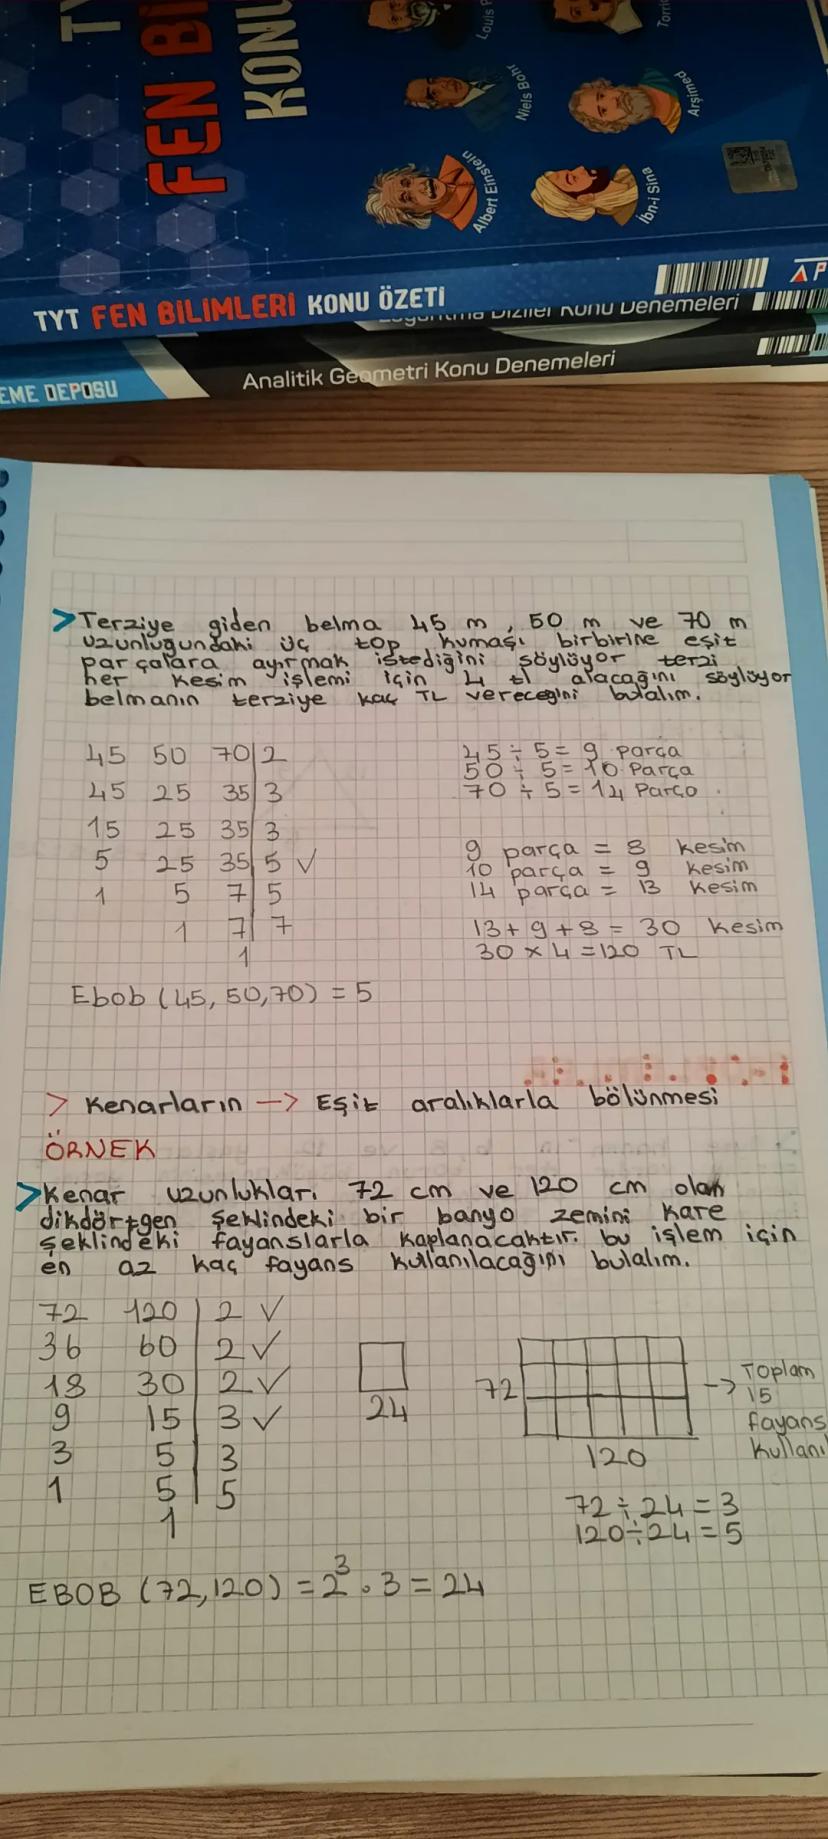 TY
FEN Bİ
KONU
Louis P
Torri
Niels Bohr
Arşimed
Albert Einstein
İbn-i Sina
TYT FEN BİLİMLERİ KONU ÖZETİ
AP
Diziler Konu Denemeleri
EME DEPOSU
Analitik Geometri Konu Denemeleri
> Terziye giden belma 45 m, 50 m ve 70 m
uzunluğundaki üç top kumaşı birbirine eşit
parçalara ayırmak istediğini söylüyor terzi
her kesim işlemi için 4 tl alacağını söylüyor
belmanın terziye kaç TL vereceğini bulalım.
45 50 70 | 2
45 25 35 | 3
15 25 35 | 3
5 25 35 | 5 ✓
1 5 7 | 5
1 7 | 7
1
Ebob (45, 50, 70) = 5
45 ÷ 5 = 9 parça
50 ÷ 5 = 10 Parça
70 ÷ 5 = 14 Parça
9 parça = 8 kesim
10 parça = 9 kesim
14 parça = 13 kesim
13 + 9 + 8 = 30 kesim
30 × 4 = 120 TL
> Kenarların → Eşit aralıklarla bölünmesi
ÖRNEK
> Kenar uzunlukları 72 cm ve 120 cm olan
dikdörtgen şeklindeki bir banyo zemini kare
şeklindeki fayanslarla kaplanacaktır. bu işlem için
en az kaç fayans kullanılacağını bulalım.
72 120 | 2 ✓
36 60 | 2 ✓
18 30 | 2 ✓
9 15 | 3 ✓
3 5 | 3
1 5 | 5
1
24
72
120
→ Toplam
15
fayans
kullanı
72 ÷ 24 = 3
120 ÷ 24 = 5
EBOB (72, 120) = 2³ . 3 = 24